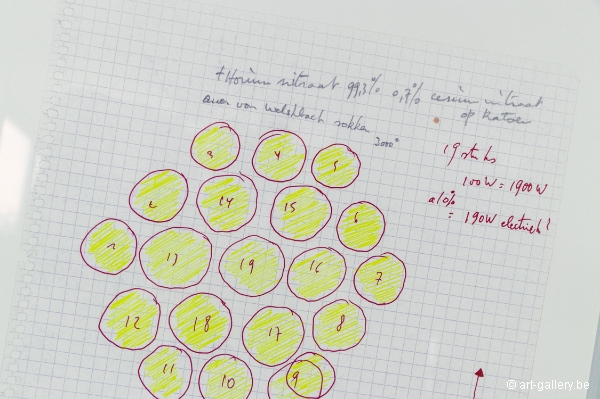 thorium nitraat 99,3% 0,7% cerium nitraat
op katoen
auer von welshbach sokken
3000°
19 stuks
100W = 1900W
a10%
= 190W electrisch?
3 4 5
2 14 15 6
1 13 19 16 7
12 18 17 8
11 10 9
© art-gallery.be